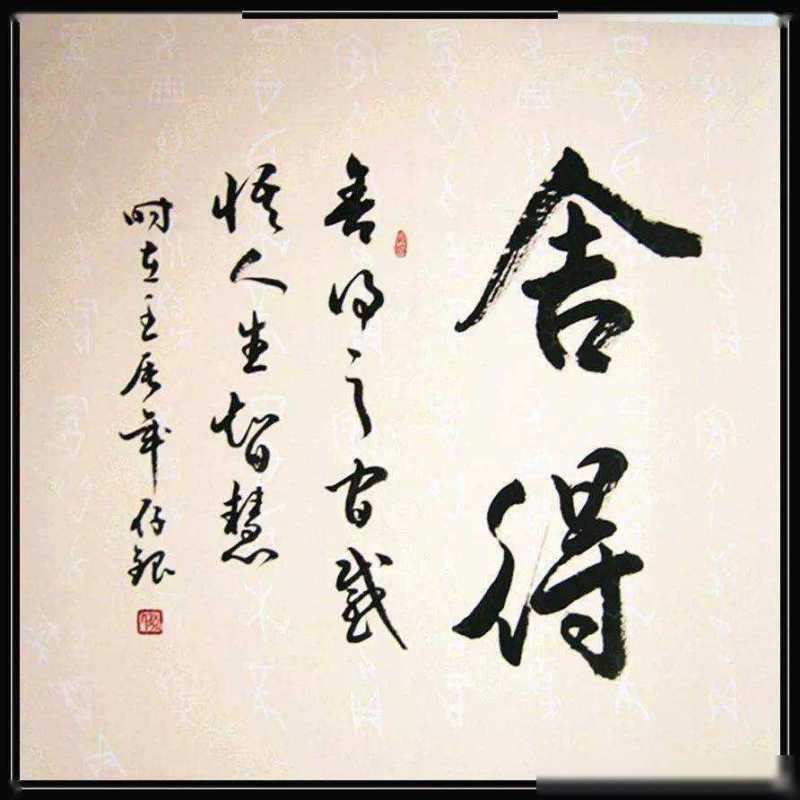 舍得
舍得之间感
悟人生智慧
时在壬辰年存银